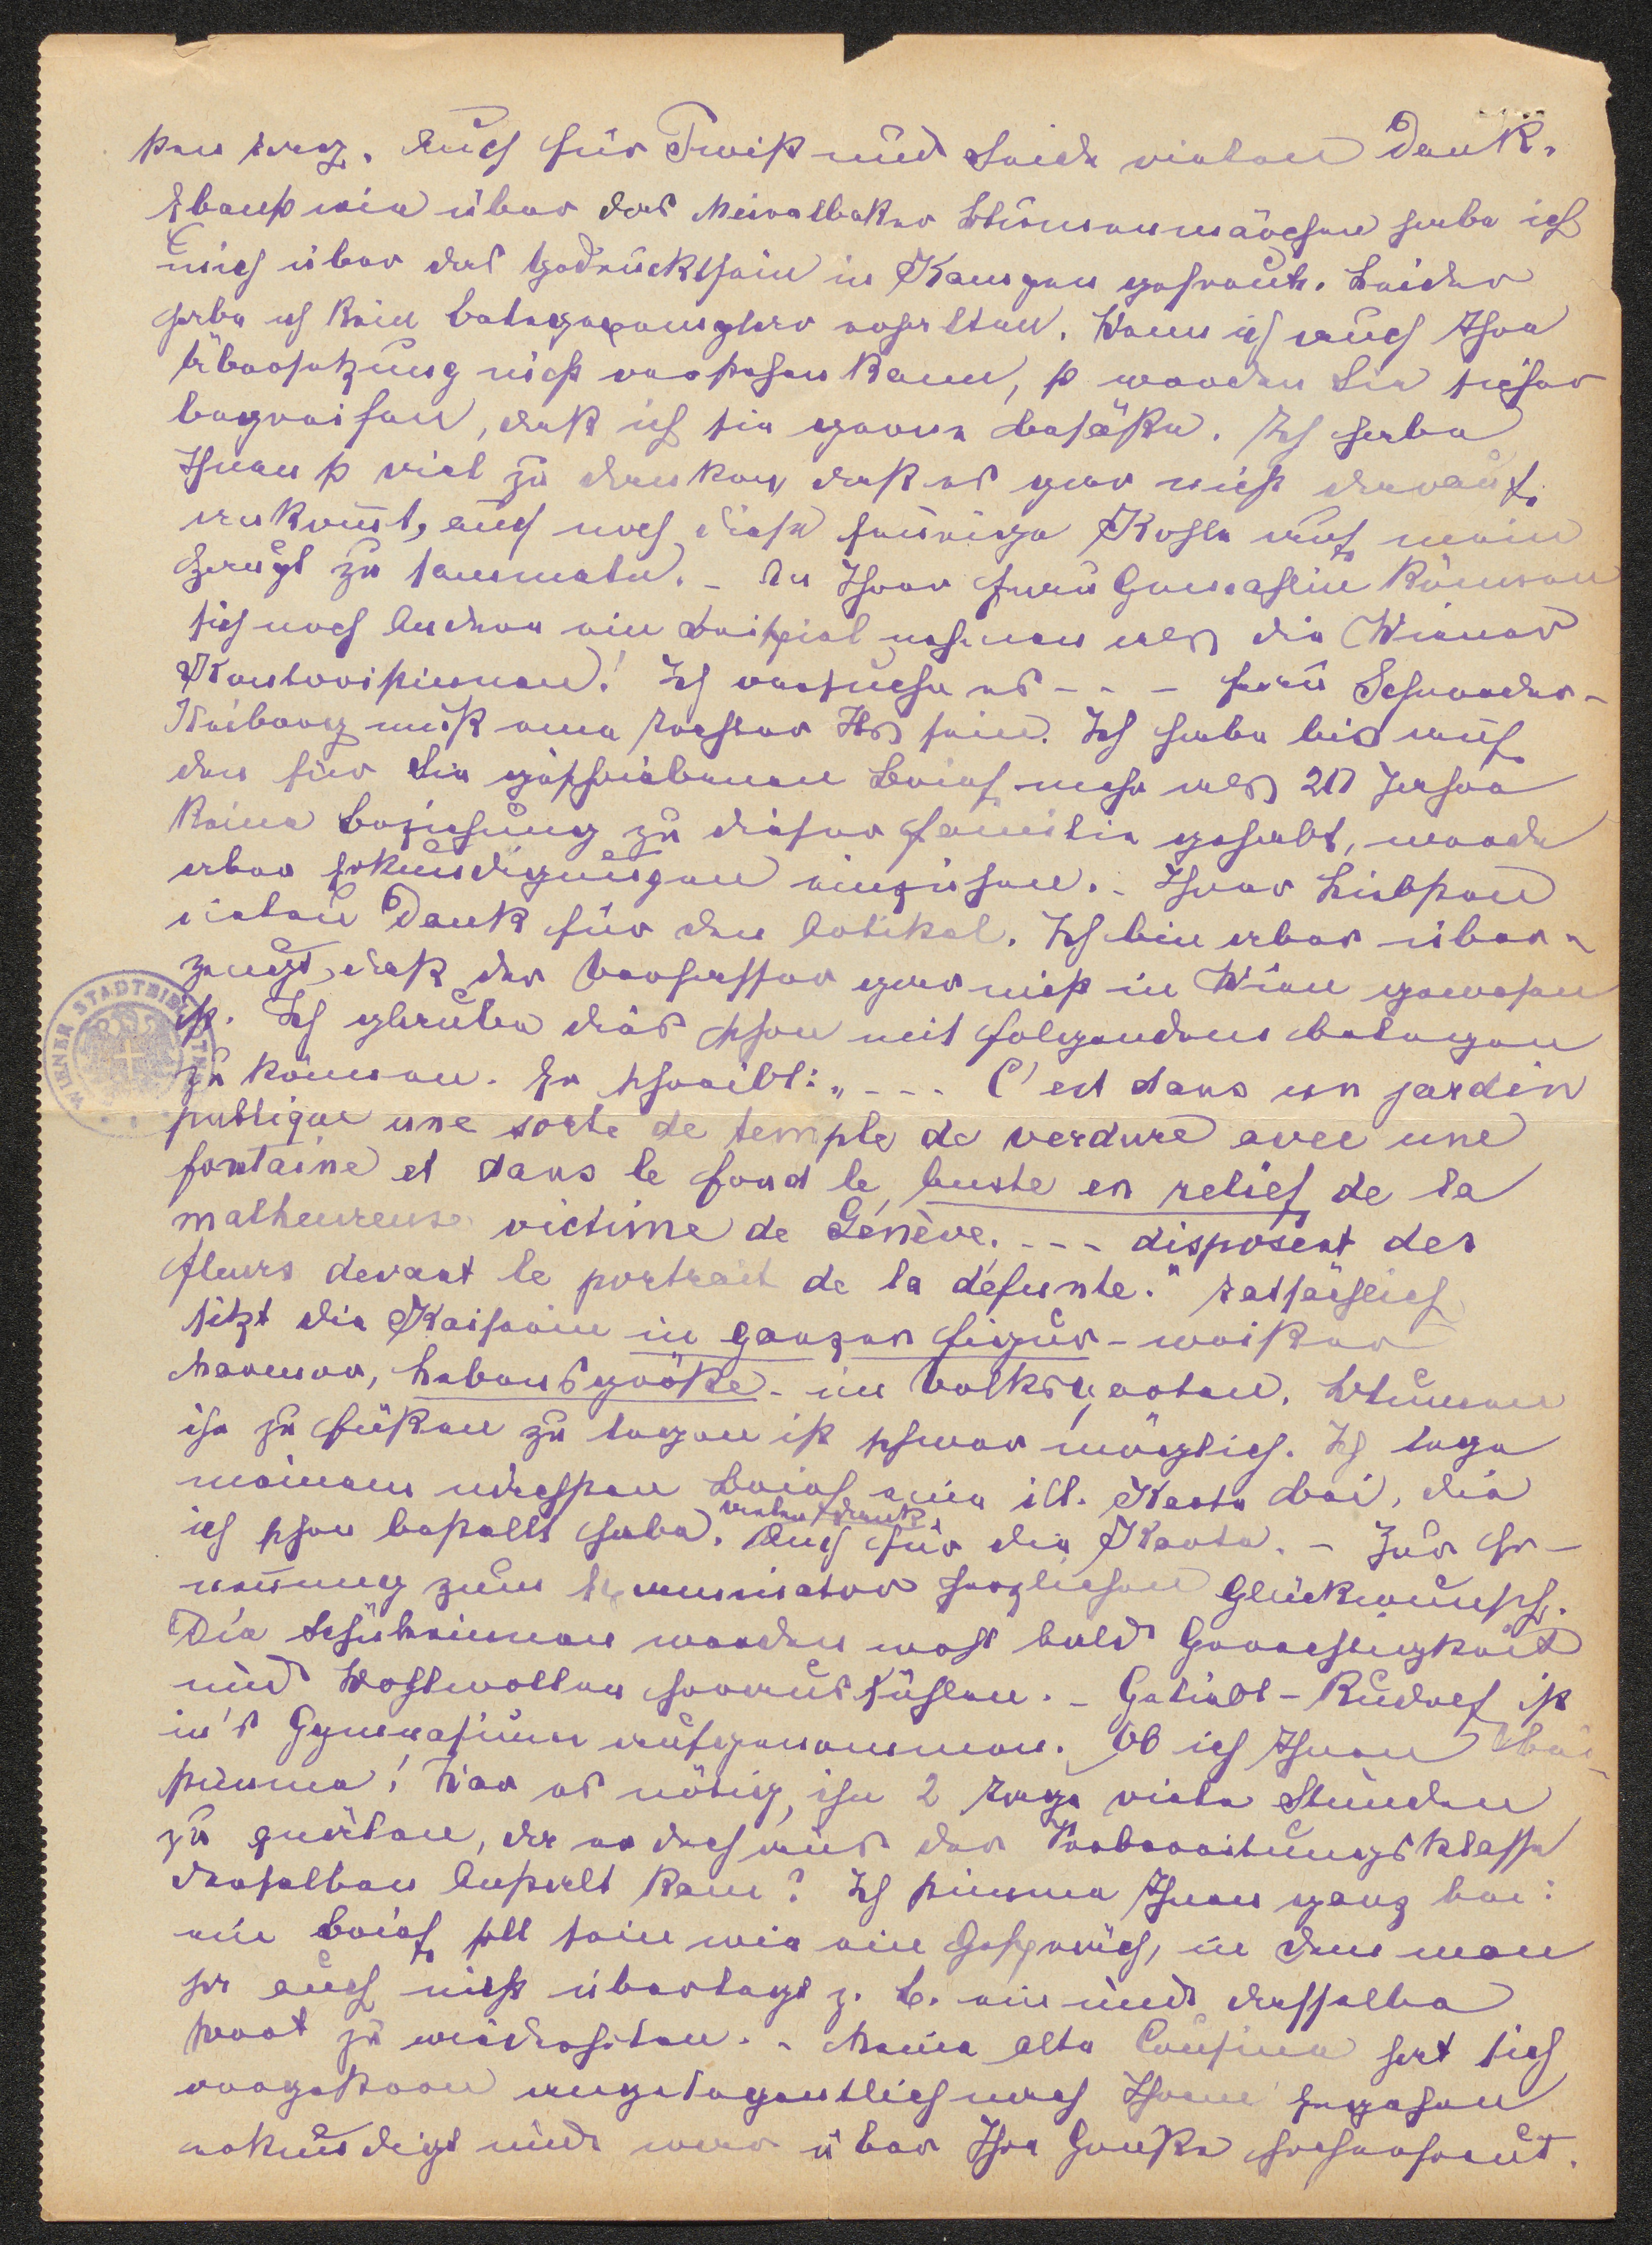 sten weg. Auch für Twist und Seide vielen Dank.
Ebenso wie über das Meiralbaker Blumenmärchen habe ich
mich über das Gedrucktsein in Kampen gefreut. Leider
habe ich kein Belegexemplar erhalten. Wenn ich auch Ihre
Übersetzung nicht verstehen kann, so werden Sie sicher
begreifen, daß ich sie gerne besäße. Ich habe
Ihnen so viel zu danken, daß es gar nicht darauf
ankommt, auch noch diese feurige Kohle auf mein
Haupt zu sammeln. – An Ihrer Frau Gemahlin können
sich noch Andere ein Beispiel nehmen als die Wiener
Kantoristinnen! Ich versuche es – – – Frau Schrader-
Neiberg muß eine Tochter Ihs sein. Ich habe bis auf
den für Sie geschriebenen Brief mehr als 20 Jahre
keine Beziehung zu dieser Familie gehabt, werde
aber Erkundigungen einziehen. – Ihrer Liebsten
vielen Dank für den Artikel. Ich bin aber über-
zeugt, daß der Verfasser gar nicht in Wien gewesen
ist. Ich glaube dies schon mit folgendem belegen
zu können. Er schreibt: „ – – – C'est dans un jardin
publique une sorte de temple de verdure avec une
fontaine et dans le fond le buste en relief de la
malheureuse victime de Génève. – – – disposent des
fleurs devant le portrait de la défunte." Tatsächlich
sitzt die Kaiserin in ganzer Figur – weißer
Marmor, Lebensgröße – im Volksgarten. Blumen
ihr zu Füßen zu legen ist schwer möglich. Ich lege
meinem nächsten Brief eine ill. Karte bei, die
ich schon bestellt habe. Auch vielen Dank für die Karte. – Zur Er-
nennung zum Examinator herzlichen Glückwunsch.
Die Schülerinnen werden wohl bald Gerechtigkeit
und Wohlwollen herausfühlen. – Geliebt-Rudolf ist
in's Gymnasium aufgenommen. Ob ich Ihnen bei-
stimme! War es nötig, ihn 2 Tage viele Stunden
zu quälen, da er doch aus der Vorbereitungsklasse
derselben Anstalt kam? Ich stimme Ihnen ganz bei:
ein Brief soll sein wie ein Gespräch, in dem man
ja auch nicht überlegt z. B. ein und dasselbe
Wort zu wiederholen. – Meine alte Cousine hat sich
vorgestern angelegentlich nach Ihrem Ergehen
erkundigt und war über Ihre Grüße hocherfreut.
WIENER STADTBIBLIOTHEK